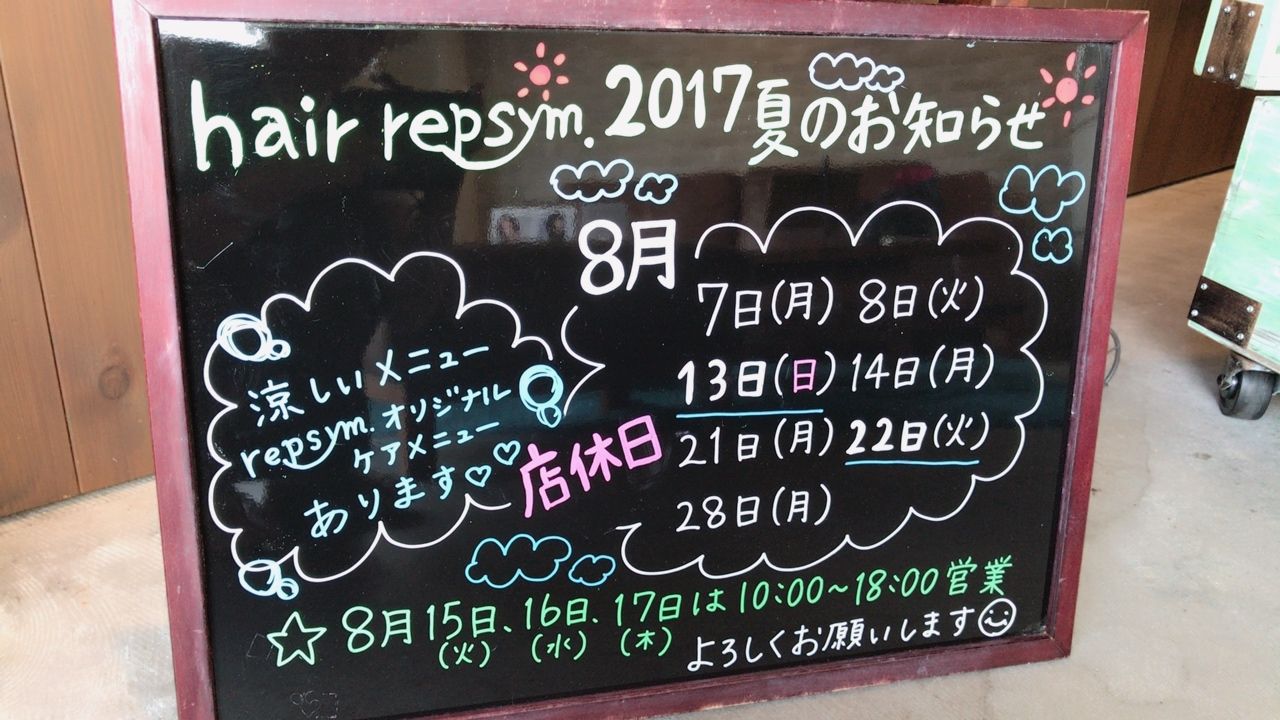 hair repsym. 2017夏のお知らせ
8月
7日(月) 8日(火)
13日(日) 14日(月)
21日(月) 22日(火)
28日(月)
店休日
涼しいメニュー
repsym.オリジナル
ケアメニュー
あります♡♡
☆ 8月15日、16日、17日は10:00~18:00営業
(火) (水) (木)
よろしくお願いします☺